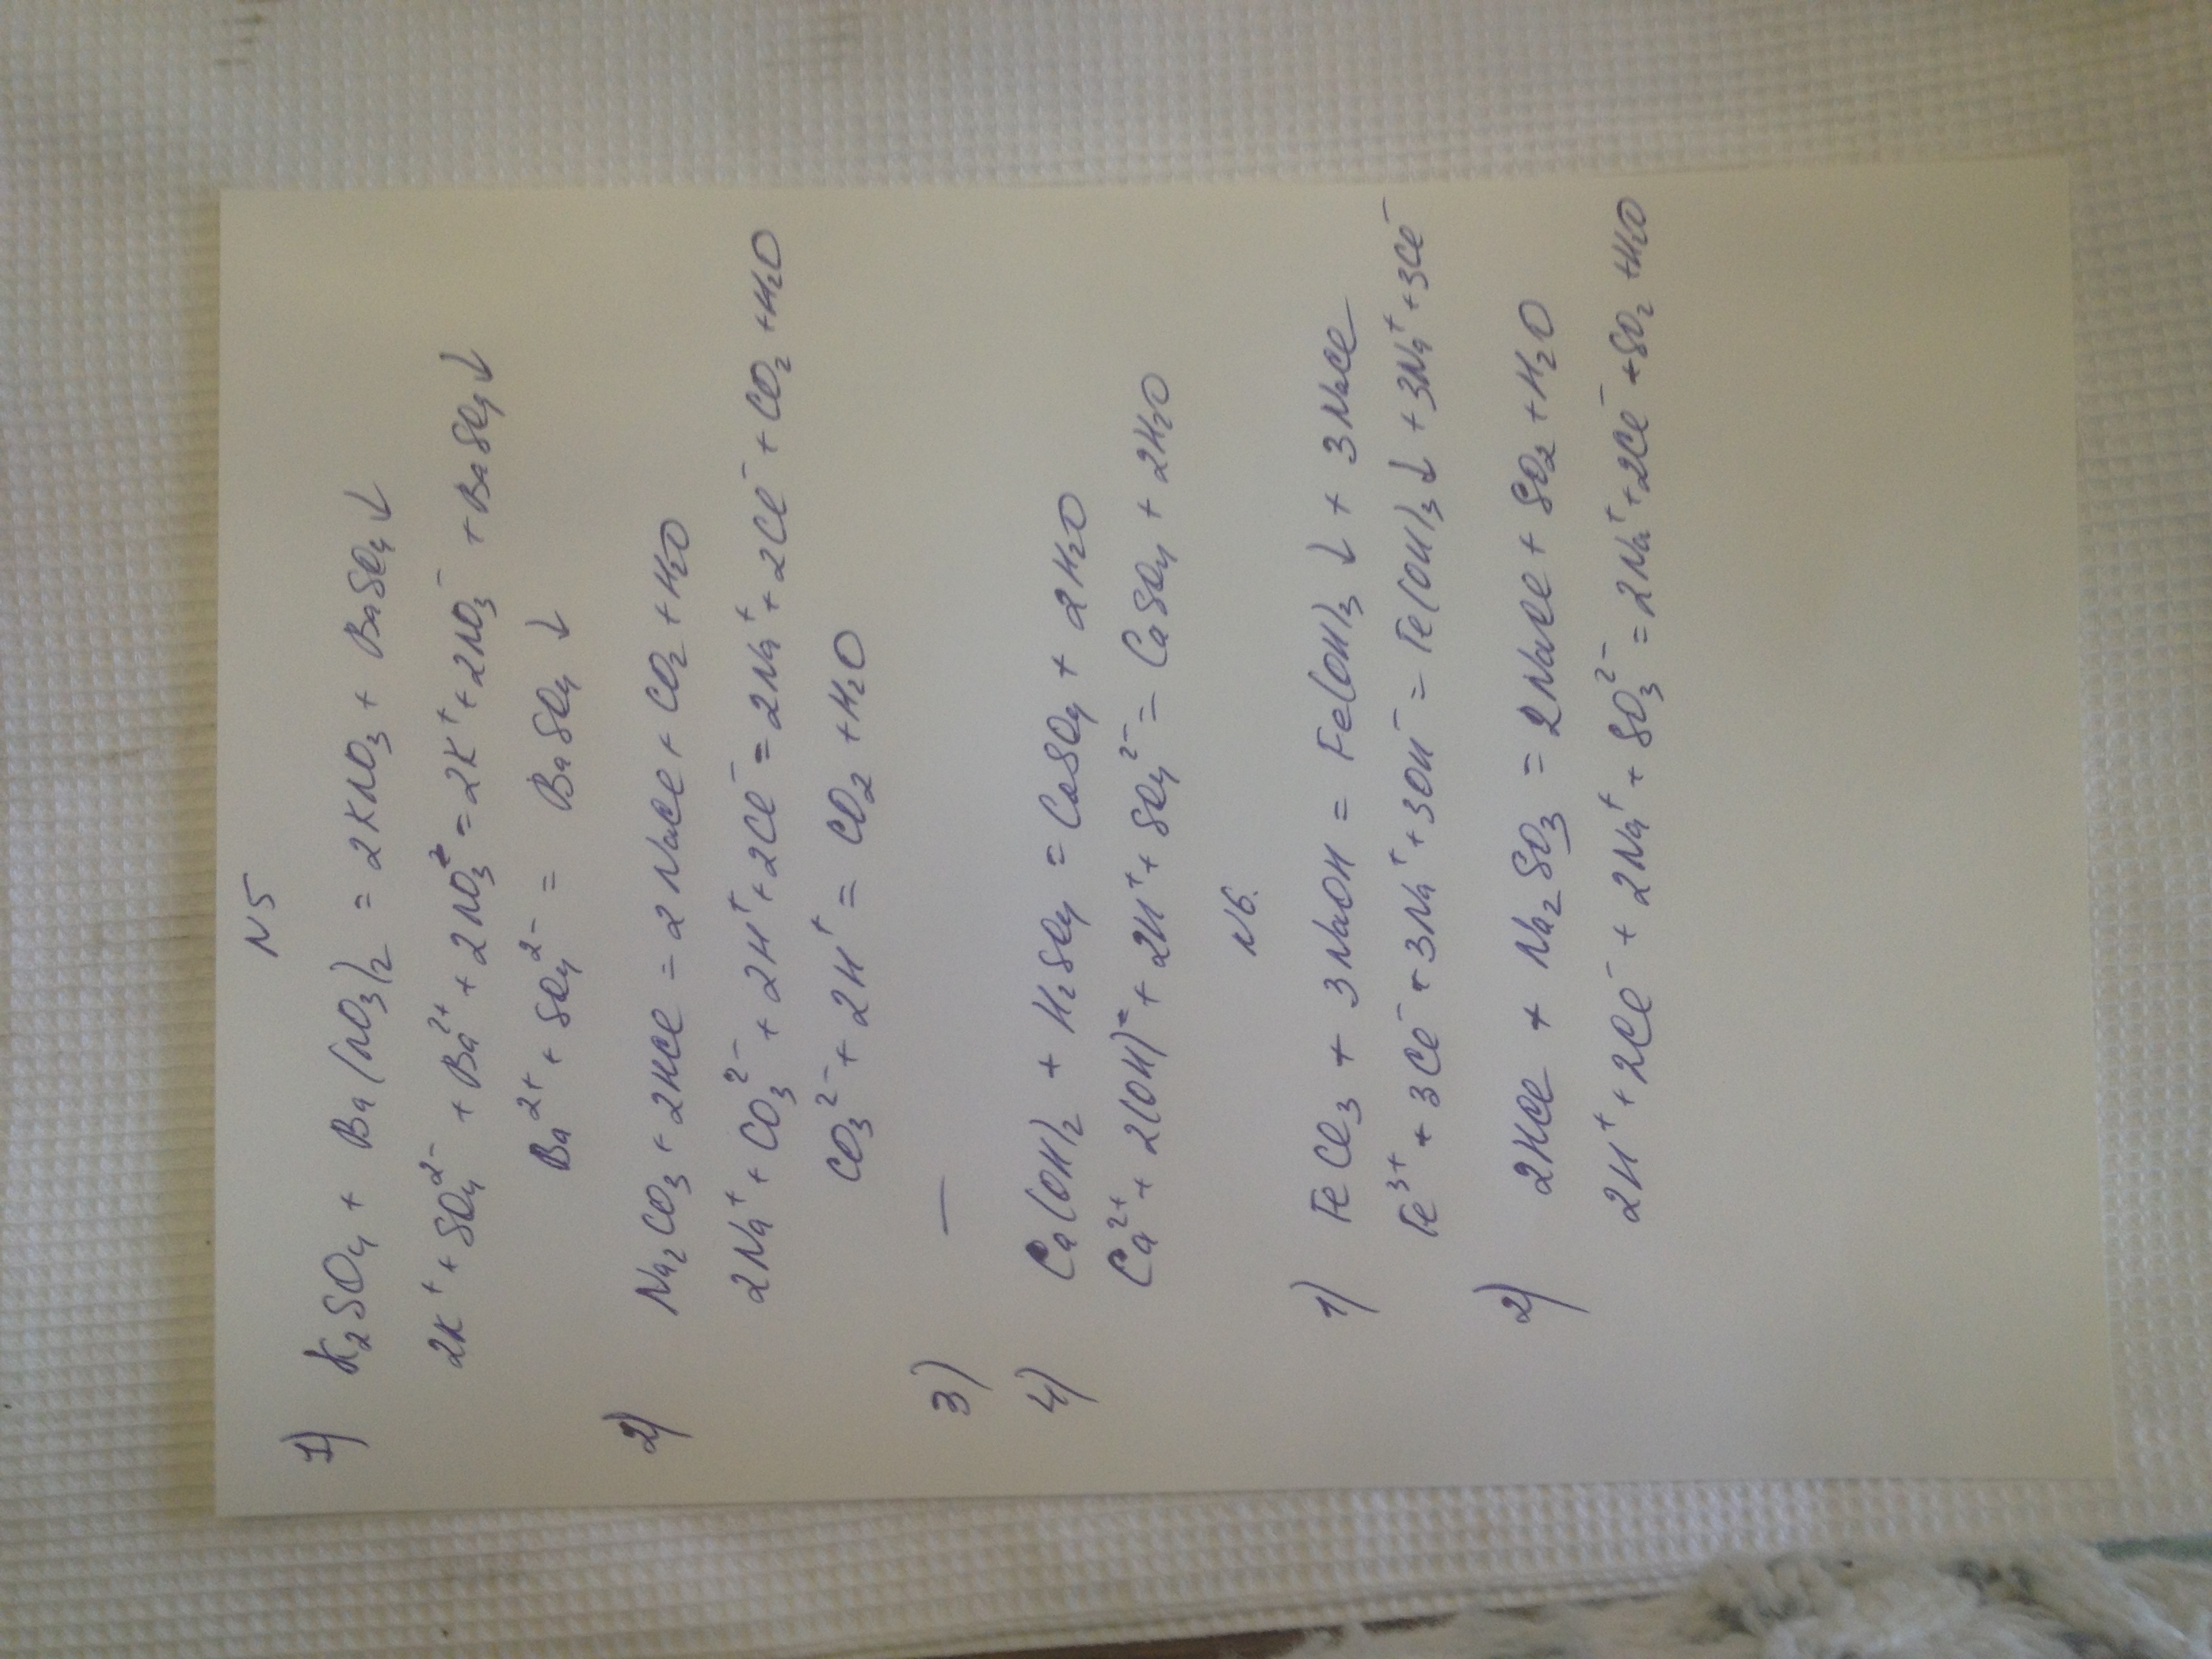 N5
1) K₂SO₄ + Ba(NO₃)₂ = 2KNO₃ + BaSO₄↓
2K⁺ + SO₄²⁻ + Ba²⁺ + 2NO₃⁻ = 2K⁺ + 2NO₃⁻ + BaSO₄↓
Ba²⁺ + SO₄²⁻ = BaSO₄↓
2) Na₂CO₃ + 2HCl = 2NaCl + CO₂ + H₂O
2Na⁺ + CO₃²⁻ + 2H⁺ + 2Cl⁻ = 2Na⁺ + 2Cl⁻ + CO₂ + H₂O
CO₃²⁻ + 2H⁺ = CO₂ + H₂O
3) —
4) Ca(OH)₂ + H₂SO₄ = CaSO₄ + 2H₂O
Ca²⁺ + 2(OH)⁻ + 2H⁺ + SO₄²⁻ = CaSO₄ + 2H₂O
N6.
1) FeCl₃ + 3NaOH = Fe(OH)₃↓ + 3NaCl
Fe³⁺ + 3Cl⁻ + 3Na⁺ + 3OH⁻ = Fe(OH)₃↓ + 3Na⁺ + 3Cl⁻
2) 2HCl + Na₂SO₃ = 2NaCl + SO₂ + H₂O
2H⁺ + 2Cl⁻ + 2Na⁺ + SO₃²⁻ = 2Na⁺ + 2Cl⁻ + SO₂ + H₂O